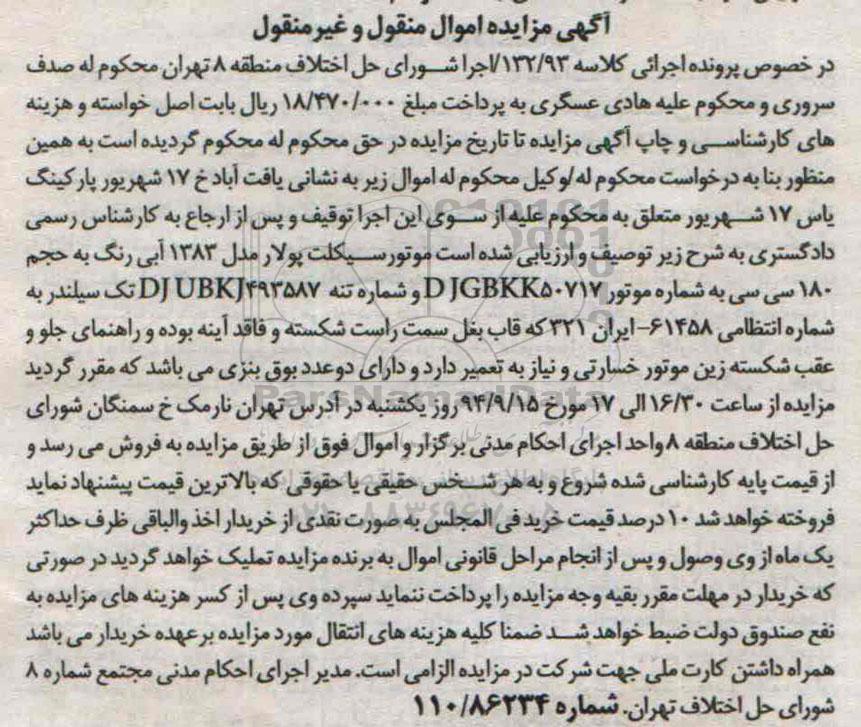 آگهی مزایده اموال منقول و غیر منقول
در خصوص پرونده اجرائی کلاسه ۱۳۲/۹۳/اجرا شورای حل اختلاف منطقه ۸ تهران محکوم له صدف
سروری و محکوم علیه هادی عسگری به پرداخت مبلغ ۱۸/۴۷۰/۰۰۰ ریال بابت اصل خواسته و هزینه
های کارشناسی و چاپ آگهی مزایده تا تاریخ مزایده در حق محکوم له محکوم گردیده است به همین
منظور بنا به درخواست محکوم له/وکیل محکوم له اموال زیر به نشانی یافت آباد خ ۱۷ شهریور پارکینگ
یاس ۱۷ شهریور متعلق به محکوم علیه از سوی این اجرا توقیف و پس از ارجاع به کارشناس رسمی
دادگستری به شرح زیر توصیف و ارزیابی شده است موتورسیکلت پولار مدل ۱۳۸۳ آبی رنگ به حجم
۱۸۰ سی سی به شماره موتور D JGBKK۵۰۷۱۷ و شماره تنه DJ UBKJ۴۹۳۵۸۷ تک سیلندر به
شماره انتظامی ۶۱۴۵۸- ایران ۳۲۱ که قاب بغل سمت راست شکسته و فاقد آینه بوده و راهنمای جلو و
عقب شکسته زین موتور خسارتی و نیاز به تعمیر دارد و دارای دوعدد بوق بنزی می باشد که مقرر گردید
مزایده از ساعت ۱۶/۳۰ الی ۱۷ مورخ ۹۴/۹/۱۵ روز یکشنبه در آدرس تهران نارمک خ سمنگان شورای
حل اختلاف منطقه ۸ واحد اجرای احکام مدنی برگزار و اموال فوق از طریق مزایده به فروش می رسد و
از قیمت پایه کارشناسی شده شروع و به هر شخص حقیقی یا حقوقی که بالاترین قیمت پیشنهاد نماید
فروخته خواهد شد ۱۰ درصد قیمت خرید فی المجلس به صورت نقدی از خریدار اخذ والباقی ظرف حداکثر
یک ماه از وی وصول و پس از انجام مراحل قانونی اموال به برنده مزایده تملیک خواهد گردید در صورتی
که خریدار در مهلت مقرر بقیه وجه مزایده را پرداخت ننماید سپرده وی پس از کسر هزینه های مزایده به
نفع صندوق دولت ضبط خواهد شد ضمنا کلیه هزینه های انتقال مورد مزایده بر عهده خریدار می باشد
همراه داشتن کارت ملی جهت شرکت در مزایده الزامی است. مدیر اجرای احکام مدنی مجتمع شماره ۸
شورای حل اختلاف تهران. شماره ۱۱۰/۸۶۲۳۴
ParsNamadData